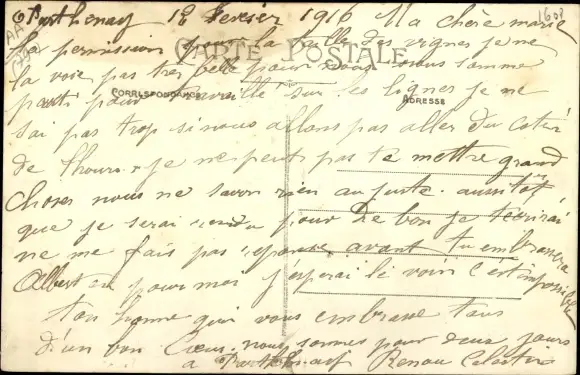 Parthenay 12 Fevrier 1916 Ma chère marie
La permission pour la taille des vignes je ne
CARTE POSTALE
la voie pas tres belle pour nous nous somme
parti pour travaille sur les lignes je ne
CORRESPONDANCE
ADRESSE
sai pas trop si nous allons pas aller du coter
de thouars je ne peut pas te mettre grand
choses nous ne savon rien au juste. aussitôt
que je serai rendu pour de bon je técrirai
ne me fais pas reponse avant tu embrassera
Albert pour moi j'esperai le voir c'est impossible
ton homme qui vous embrasse tous
d'un bon Cœur. nous sommes pour deux jours
a Parthenay Renou